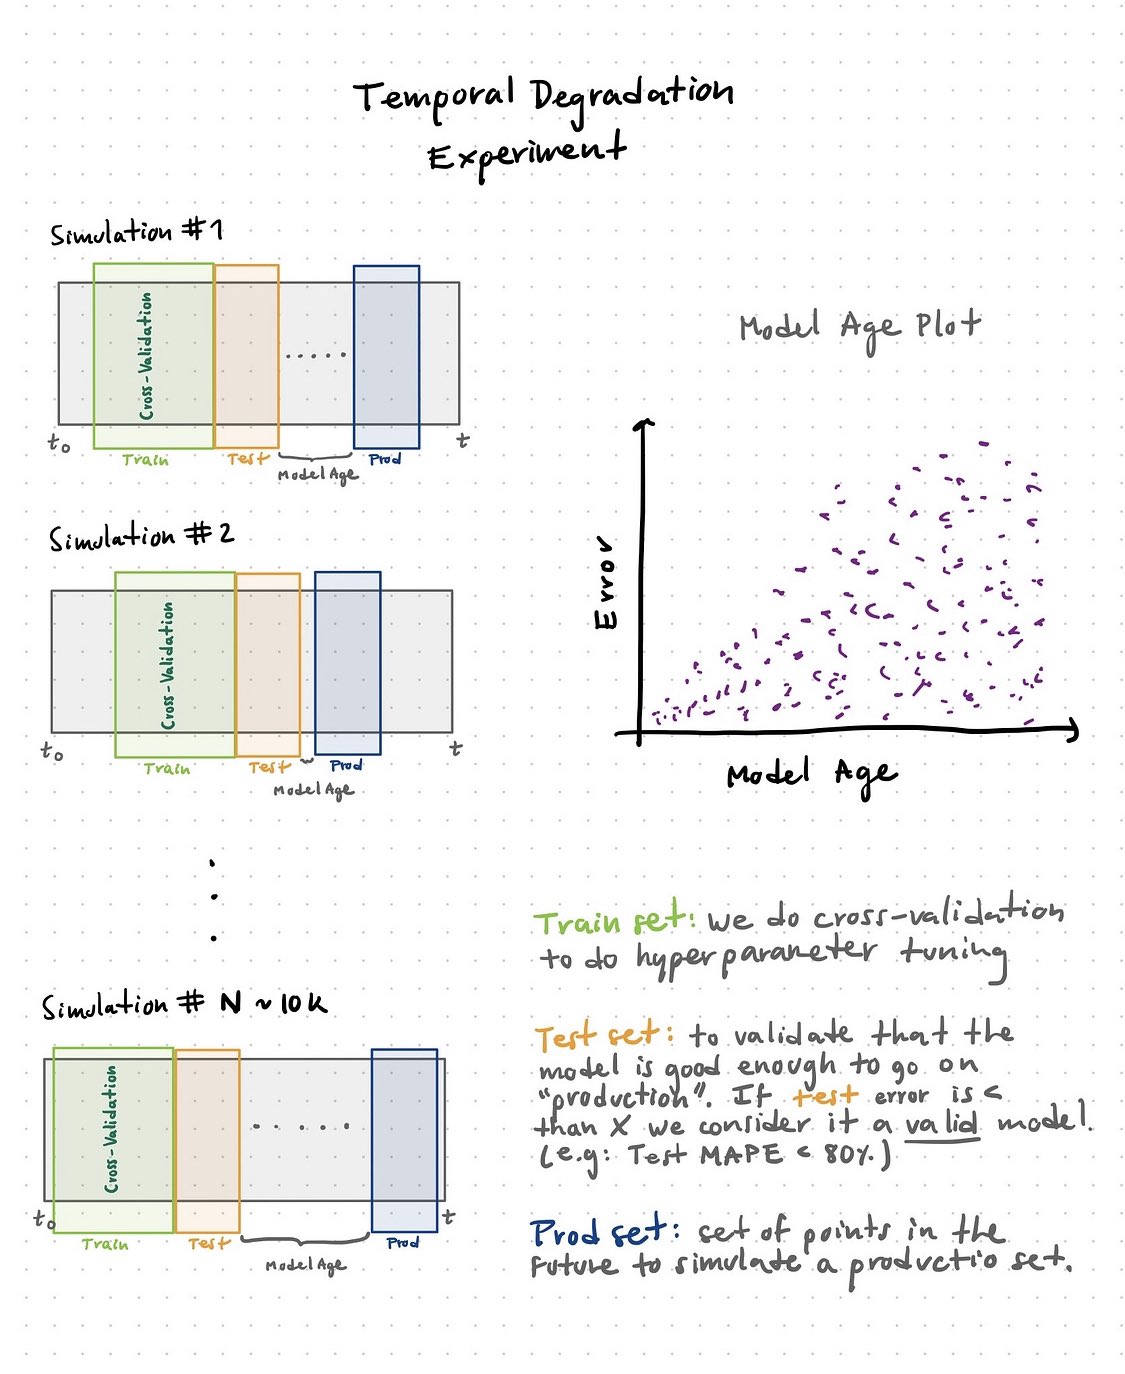 Temporal Degradation
Experiment
Simulation #1
Cross-Validation
t₀
Train
Test
Model Age
Prod
t
Simulation #2
Cross-Validation
t₀
Train
Test
Model Age
Prod
t
Simulation # N ~ 10k
Cross-Validation
t₀
Train
Test
Model Age
Prod
t
Model Age Plot
Error
Model Age
Train set: we do cross-validation
to do hyperparameter tuning
Test set: to validate that the
model is good enough to go on
"production". If test error is <
than X we consider it a valid model.
(e.g: Test MAPE < 80%)
Prod set: set of points in the
future to simulate a productio set.